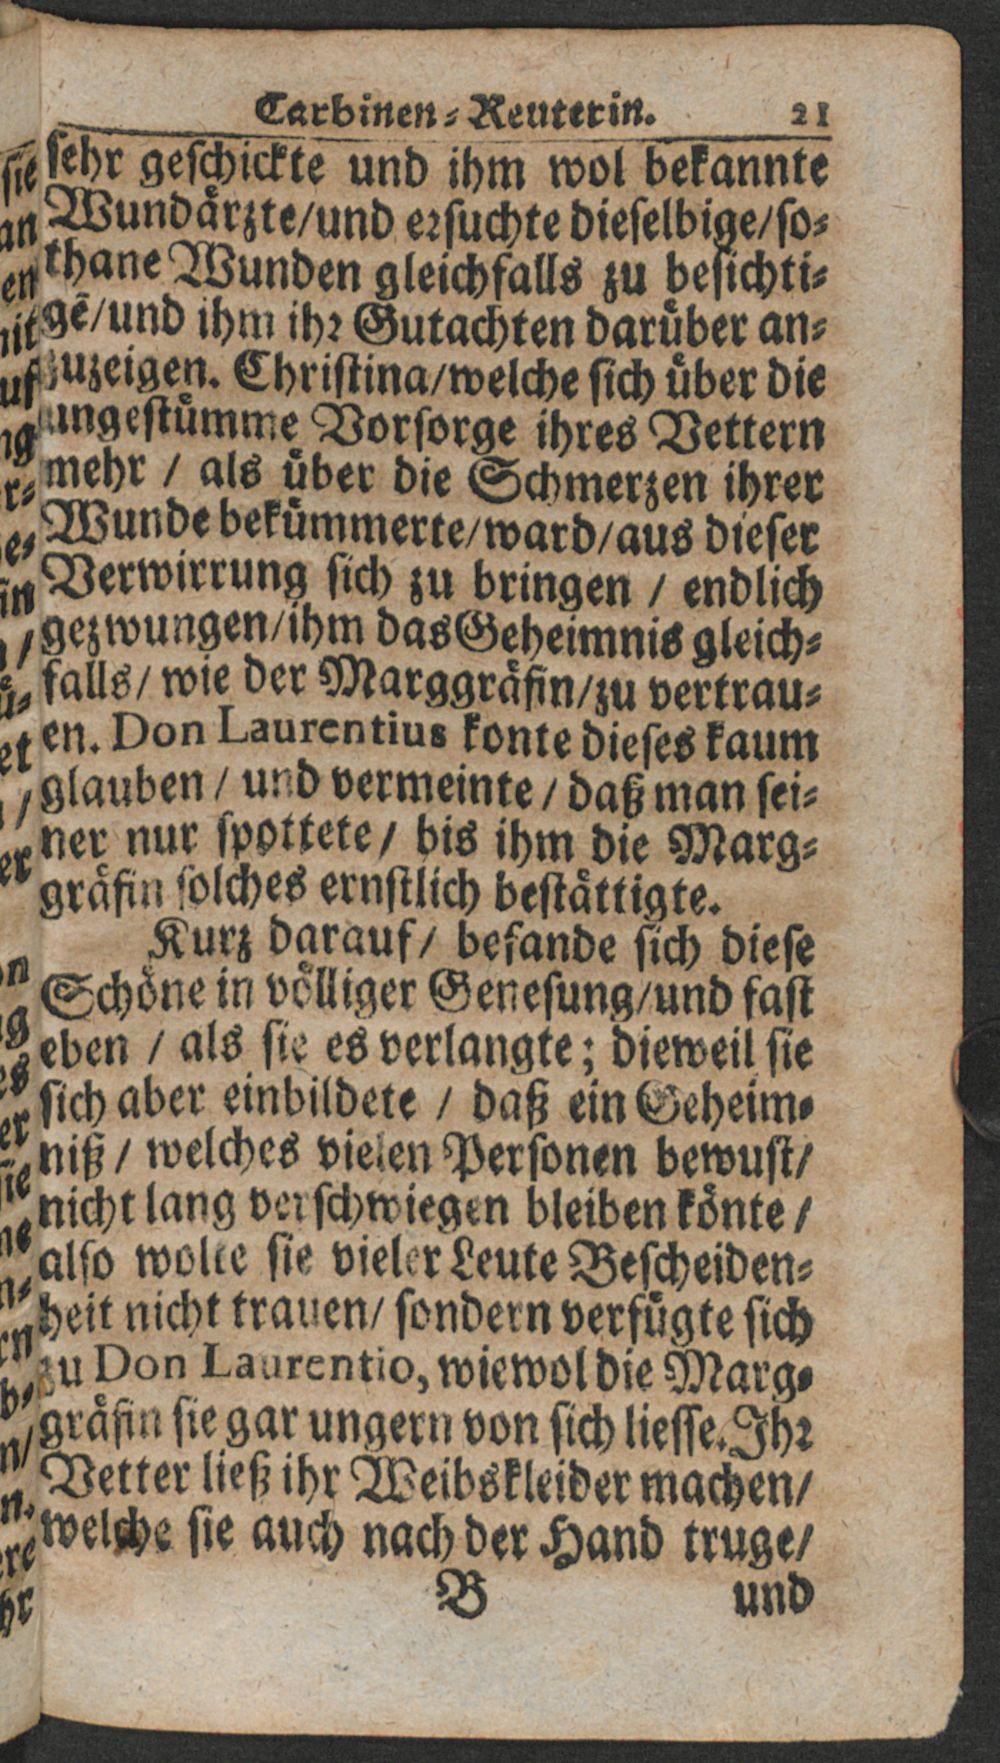 Carbinen-Reuterin. 21
sehr geschickte und ihm wol bekannte
Wundärzte/und ersuchte dieselbige/so-
thane Wunden gleichfalls zu besichti-
gē/und ihm ihr Gutachten darüber an-
zuzeigen. Christina/welche sich über die
ungestümme Vorsorge ihres Vettern
mehr / als über die Schmerzen ihrer
Wunde bekümmerte/ward/aus dieser
Verwirrung sich zu bringen / endlich
gezwungen/ihm das Geheimnis gleich-
falls/ wie der Marggräfin/zu vertrau-
en. Don Laurentius konte dieses kaum
glauben / und vermeinte / daß man sei-
ner nur spottete / bis ihm die Marg-
gräfin solches ernstlich bestättigte.
Kurz darauf/ befande sich diese
Schöne in völliger Genesung/und fast
eben / als sie es verlangte; dieweil sie
sich aber einbildete / daß ein Geheim-
niß / welches vielen Personen bewust/
nicht lang verschwiegen bleiben könte /
also wolte sie vieler Leute Bescheiden-
heit nicht trauen/ sondern verfügte sich
zu Don Laurentio, wiewol die Marg-
gräfin sie gar ungern von sich liesse. Ihr
Vetter ließ ihr Weibskleider machen/
welche sie auch nach der Hand truge/
B und